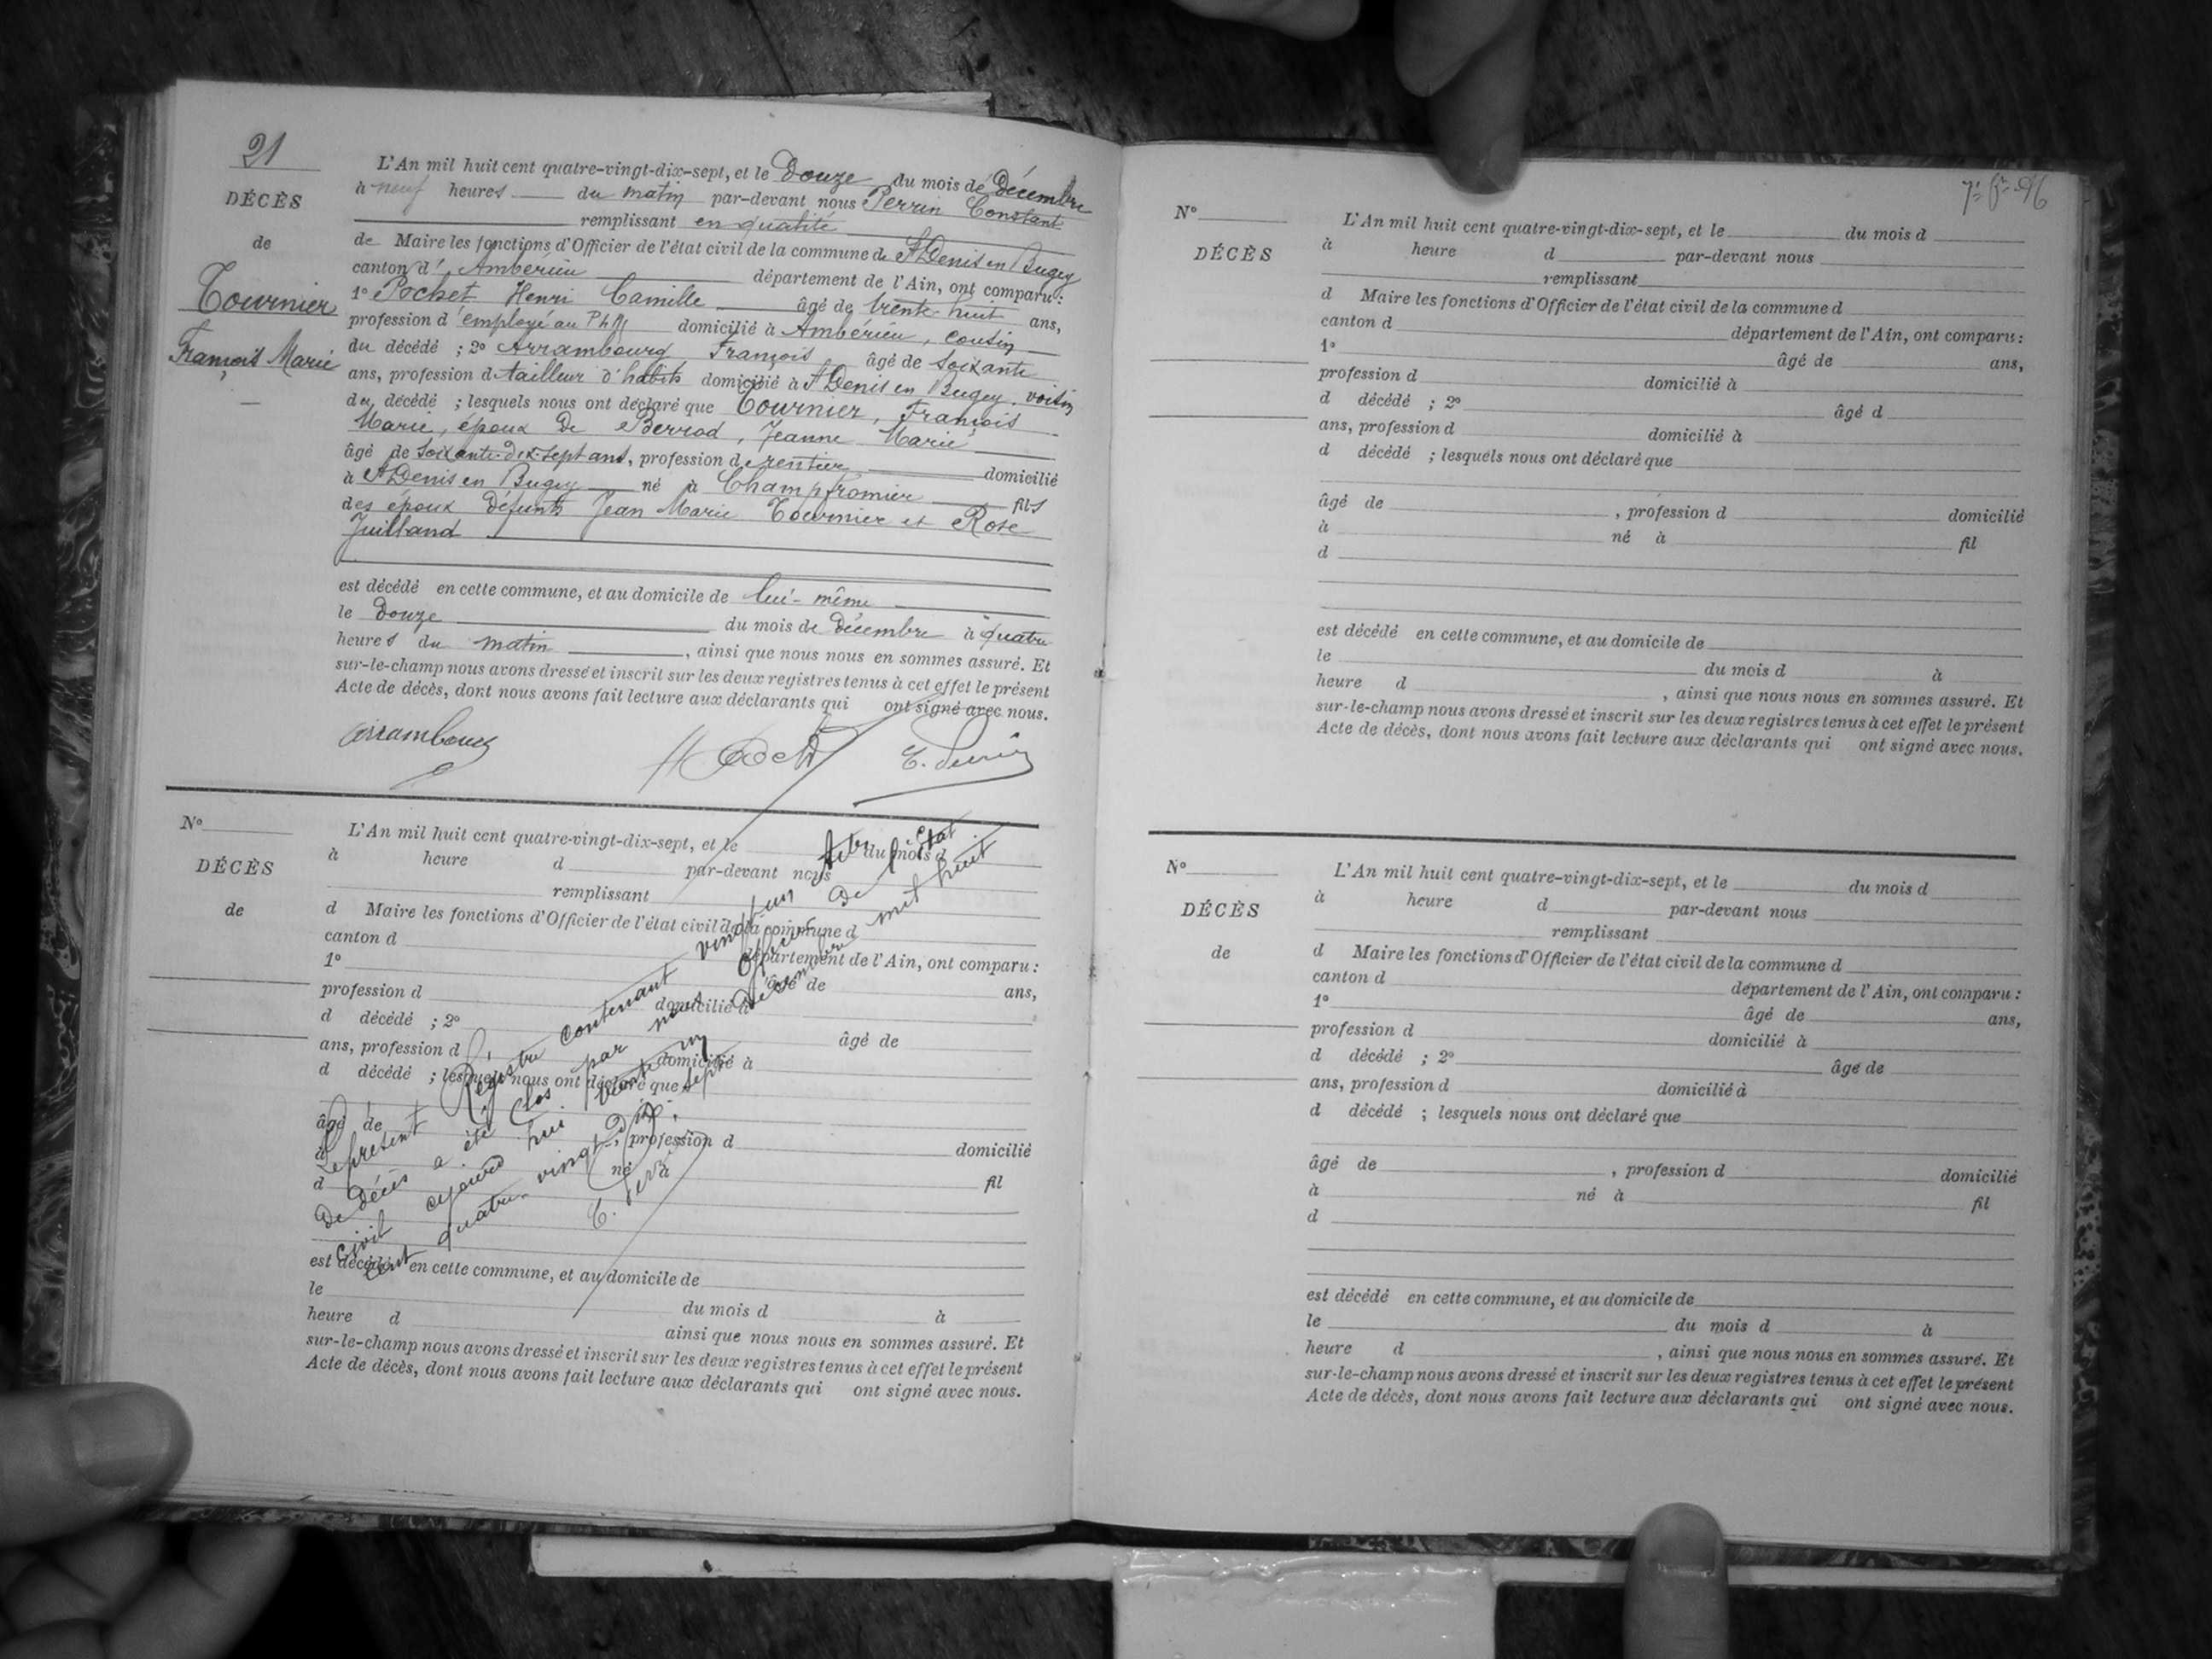 21
DÉCÈS
de
Tournier
François Marie
L'An mil huit cent quatre-vingt-dix-sept, et le Douze du mois de Décembre
à neuf heures du matin par-devant nous Perrin Constant
remplissant en qualité
de Maire les fonctions d'Officier de l'état civil de la commune de St Denis en Bugey
canton d' Ambérieu département de l'Ain, ont comparu:
1° Pochet Henri Camille âgé de trente huit ans,
profession d'employé au domicilié à Ambérieu, cousin
du décédé ; 2° Arrambourg François âgé de soixante
ans, profession de tailleur d'habits domicilié à St Denis en Bugey, voisin
du décédé ; lesquels nous ont déclaré que Tournier, François
Marie, époux de Berrod, Jeanne Marie
âgé de soixante-dix-sept ans, profession de rentier domicilié
à St Denis en Bugey né à Champfromier fils
des époux défunts Jean Marie Tournier et Rose
Juilland
est décédé en cette commune, et au domicile de lui-même
le douze du mois de décembre à quatre
heures du matin, ainsi que nous nous en sommes assuré. Et
sur-le-champ nous avons dressé et inscrit sur les deux registres tenus à cet effet le présent
Acte de décès, dont nous avons fait lecture aux déclarants qui ont signé avec nous.
Arrambourg
H Pochet
C. Perrin
N°
DÉCÈS
de
L'An mil huit cent quatre-vingt-dix-sept, et le du mois d
à heure d par-devant nous
remplissant
d Maire les fonctions d'Officier de l'état civil de la commune d
canton d département de l'Ain, ont comparu:
1° âgé de ans,
profession d domicilié à
d décédé ; 2° âgé de
ans, profession d domicilié à
d décédé ; lesquels nous ont déclaré que
âgé de , profession d domicilié
à né à fil
d
est décédé en cette commune, et au domicile de
le du mois d à
heure d ainsi que nous nous en sommes assuré. Et
sur-le-champ nous avons dressé et inscrit sur les deux registres tenus à cet effet le présent
Acte de décès, dont nous avons fait lecture aux déclarants qui ont signé avec nous.
Le présent Régistre contenant vingt-un
de décès a été clos par nous Officier de l'état
civil aujourd'hui trente un décembre mil huit
cent quatre-vingt-dix-sept
C. Perrin
N°
DÉCÈS
de
L'An mil huit cent quatre-vingt-dix-sept, et le du mois d
à heure d par-devant nous
remplissant
d Maire les fonctions d'Officier de l'état civil de la commune d
canton d département de l'Ain, ont comparu:
1° âgé de ans,
profession d domicilié à
d décédé ; 2° âgé d
ans, profession d domicilié à
d décédé ; lesquels nous ont déclaré que
âgé de , profession d domicilié
à né à fil
d
est décédé en cette commune, et au domicile de
le du mois d à
heure d , ainsi que nous nous en sommes assuré. Et
sur-le-champ nous avons dressé et inscrit sur les deux registres tenus à cet effet le présent
Acte de décès, dont nous avons fait lecture aux déclarants qui ont signé avec nous.
N°
DÉCÈS
de
L'An mil huit cent quatre-vingt-dix-sept, et le du mois d
à heure d par-devant nous
remplissant
d Maire les fonctions d'Officier de l'état civil de la commune d
canton d département de l'Ain, ont comparu:
1° âgé de ans,
profession d domicilié à
d décédé ; 2° âgé de
ans, profession d domicilié à
d décédé ; lesquels nous ont déclaré que
âgé de , profession d domicilié
à né à fil
d
est décédé en cette commune, et au domicile de
le du mois d à
heure d , ainsi que nous nous en sommes assuré. Et
sur-le-champ nous avons dressé et inscrit sur les deux registres tenus à cet effet le présent
Acte de décès, dont nous avons fait lecture aux déclarants qui ont signé avec nous.